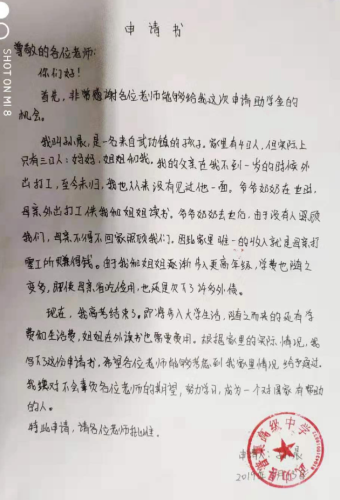 申请书
尊敬的各位老师:
你们好!
首先,非常感谢各位老师能够给我这次申请助学金的
机会。
我叫孙晨,是一名来自武功镇的孩子。家里有4口人,但实际上
只有三口人:妈妈,姐姐和我。我的父亲在我不到一岁的时候外
出打工,至今未归,我也从来没有见过他一面。爷爷奶奶在世时,
母亲外出打工供我和姐姐读书,爷爷奶奶去世后,由于没有人照顾
我们,母亲不得不回家照顾我们。因此家里唯一的收入就是母亲打
零工所赚得钱。由于我和姐姐逐渐步入更高年级,学费也随之
变多,即使母亲省吃俭用,也还是欠了许多外债。
现在,我高考结束了。即将步入大学生活,随之而来的是有学
费和生活费,姐姐在外读书也需要费用。根据家里的实际情况,我
写了这份申请书,希望各位老师能够考虑到我家里情况给予通过。
我绝对不会辜负各位老师的期望,努力学习,成为一个对国家有帮助
的人。
特此申请,请各位老师批准。
申请人:
2019年
SHOT ON MI 8